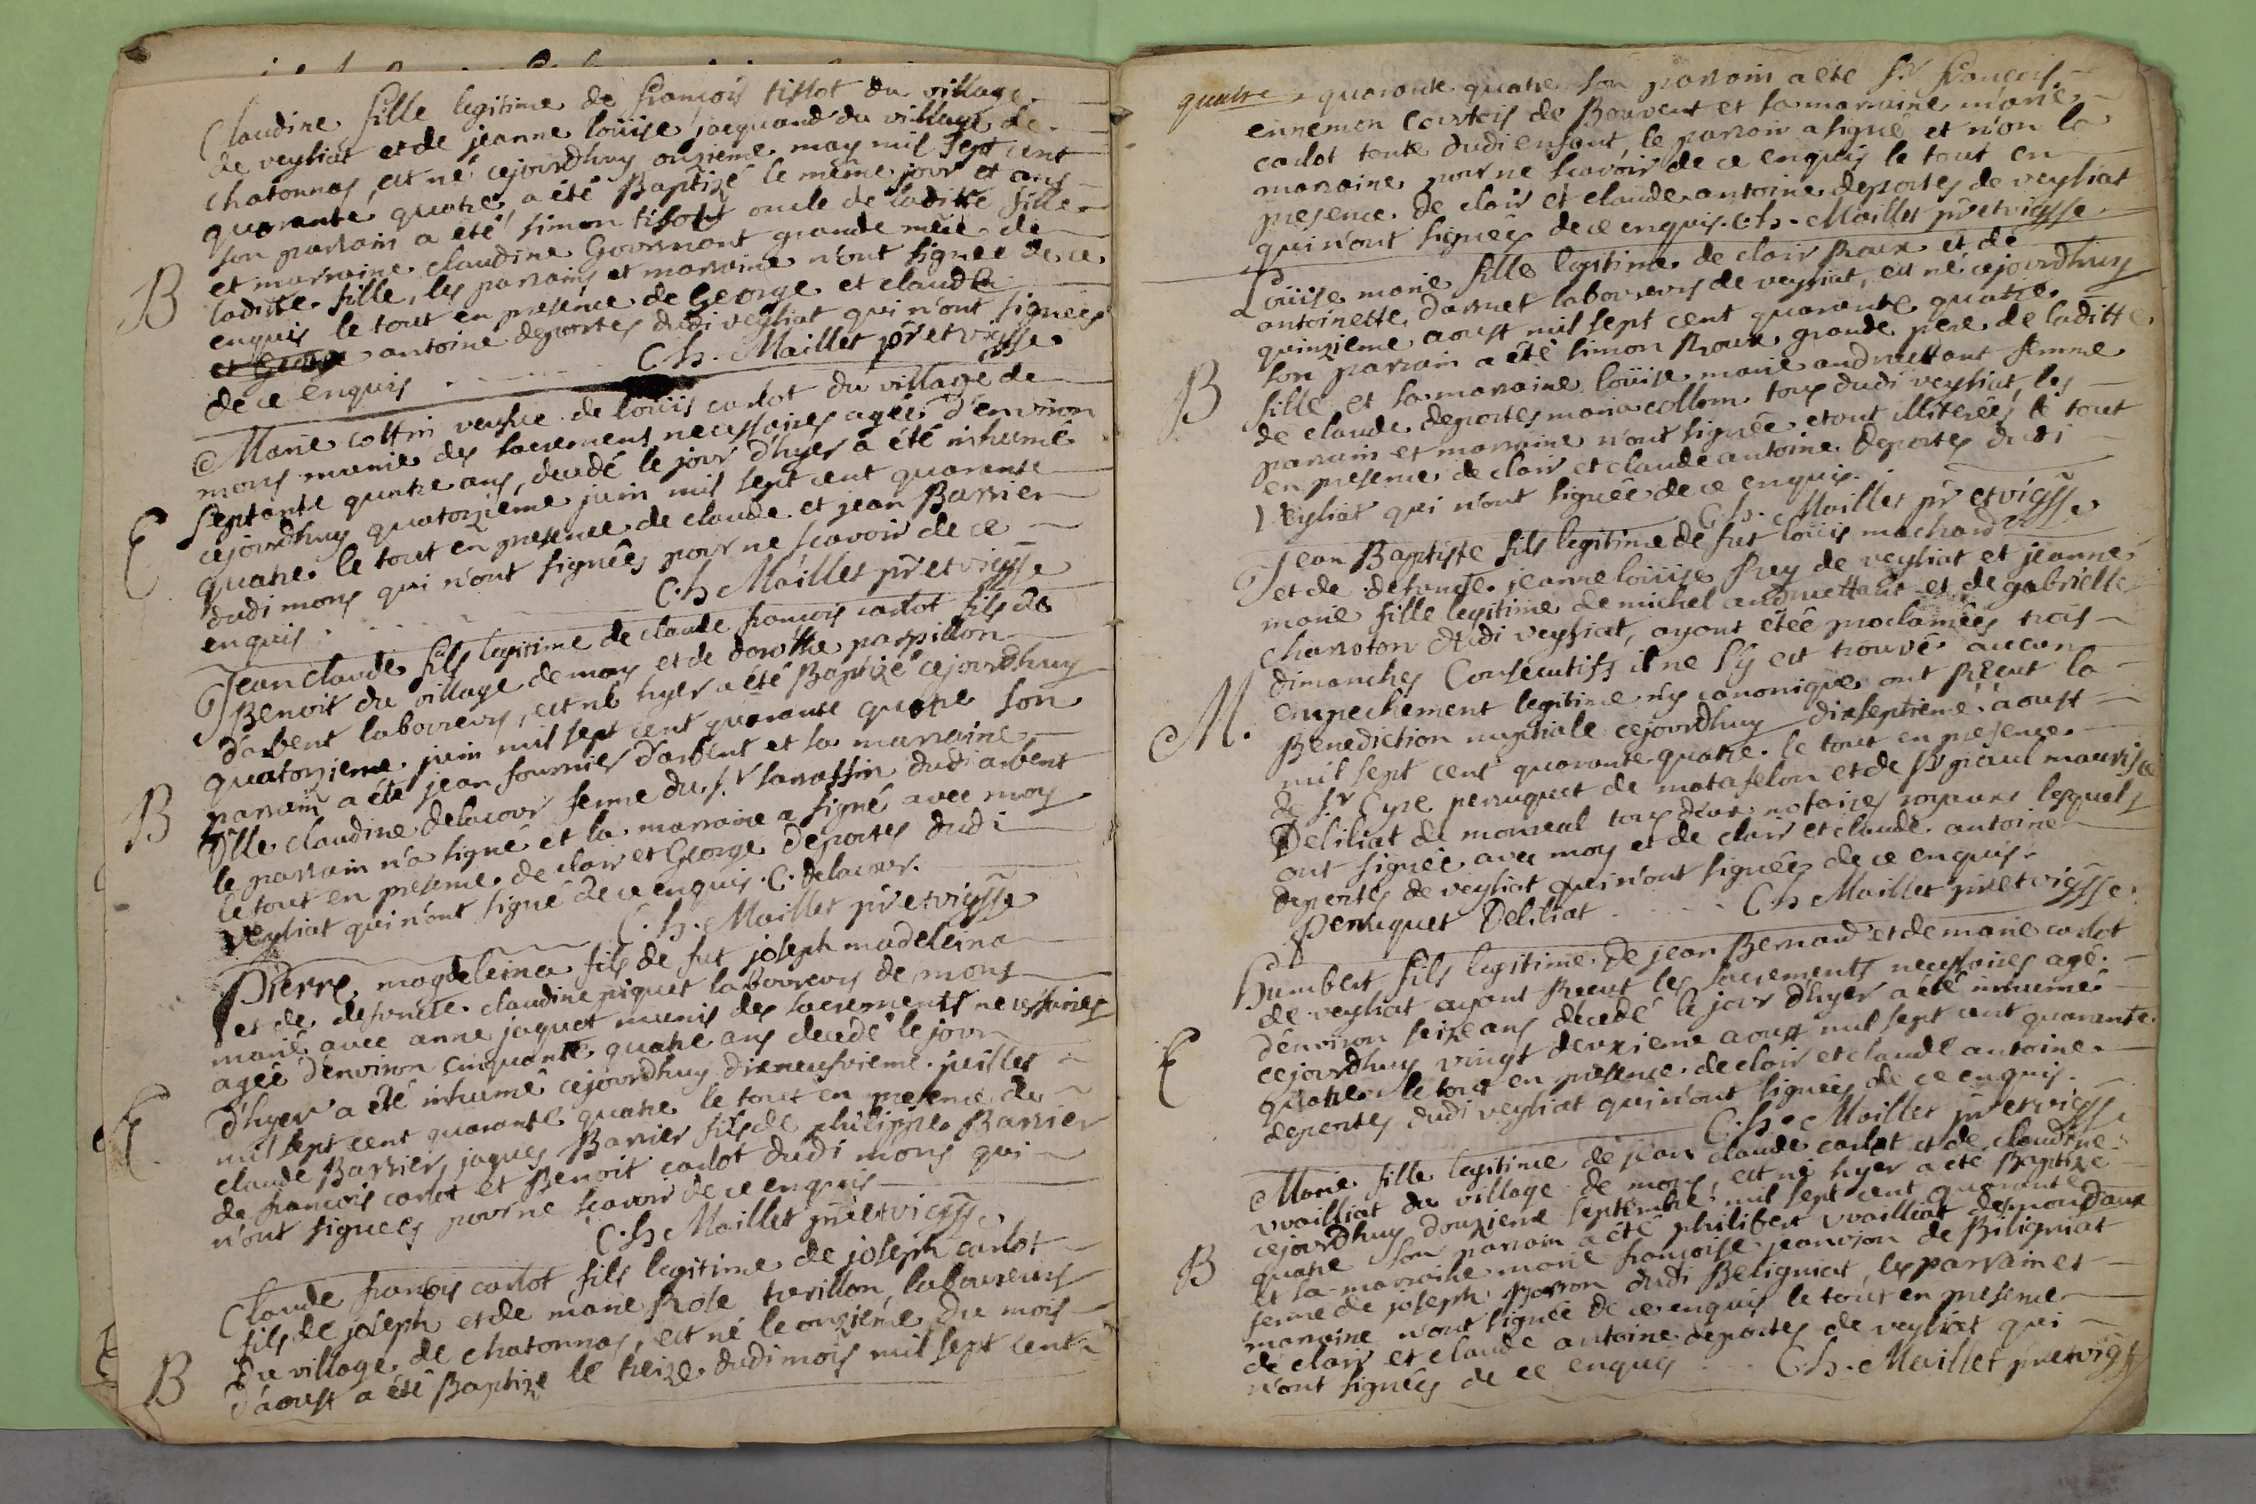 Claudine fille legitime de françois tissot du village
de veyliat et de jeanne loüise jacquand du village de
chatonnas, est né cejourdhuy onzieme may mil sept cent
quarante quatre a été Baptizé le même jour et ans
son parrain a été simon tissot oncle de laditte fille
et marraine claudine Gourmont grande mere de
B
laditte fille, les parrains et marraine n'ont signée de ce
enquis le tout en presence de George et claude
et George antoine deportes dudi veyliat qui n'ont signeés
de ce enquis C. h. Maillet prêt viçsse
Marie cottin veufve de loüis carlot du village de
mons munie des sacrements necessaires ageé d'environ
septante quatre ans, decedé le jour d'hyer a été inhumé
E
cejourdhuy quatorzieme juin mil sept cent quarante
quatre le tout en presence de claude et jean Barrier
dudi mons qui n'ont signeés pour ne scavoir de ce
enquis C. h Maillet prêt viçsse
Jean claude fils legitime de claude françois carlot fils de
Benoit du village de mons et de dorothe parpillon
d'arbent laboureurs, est né hyer a été Baptizé cejourdhuy
quatorzieme juin mil sept cent quarante quatre son
B
parrain a été jean fournier d'arbent et sa marraine
Dlle claudine delacour femme du sr sarrassin dudi arbent
le parrain n'a signé et la marraine a signé avec moy
le tout en presence de clair et George deportes dudi
veyliat qui n'ont signé de ce enquis. C. Delacour.
C. h. Maillet prêt viçsse
Pierre magdeleina fils de fut joseph madeleina
et de defuncte claudine piquet laboureurs de mons
marié avec anne jaquet munis des sacrements necessaires
ageé d'environ cinquante quatre ans decedé le jour
d'hyer a été inhumé cejourdhuy dixneufvieme juillet
E
mil sept cent quarante quatre le tout en presence de
claude Barrier, jaques Barrier fils de philippe Barrier
de françois carlot et Benoit carlot dudi mons qui
n'ont signeés pour ne scavoir de ce enquis
C. h Maillet prêt viçsse
Claude françois carlot fils legitime de joseph carlot
fils de joseph et de marie Rose turillon, laboureurs
du village de chatonnas, est né le onziéme du mois
B
d'aoust a été Baptize le treize dudi mois mil sept cent
quatre quarante quatre son parrain a été sr françois
ennemon courtois de Bouvent et sa marraine marie
carlot tente dudi enfant, le parrain a signé et n'on la
marraine pour ne scavoir de ce enquis le tout en
presence de clair et claude antoine deportes de veyliat
qui n'ont signeés de ce enquis. C. h. Maillet prêt viçsse
Loüise marie fille legitime de clair Roux et de
antoinette darmet laboureurs de veyliat, est né cejourdhuy
quinzieme aoust mil sept cent quarante quatre
son parrain a été simon Roux grande pere de laditte
B
fille et sa marraine loüise marie andruettant femme
de claude deportes maria collom tous dudi veyliat, les
parrain et marraine n'ont signée etant illitereés le tout
en presence de clair et claude antoine deportes dudi
veyliat qui n'ont signeé de ce enquis.
C. h. Maillet prêt viçsse
Jean Baptiste fils legitime de fut loüis machard
et de defuncte jeanne loüise frey de veyliat et jeanne
marie fille legitime de michel andruettant et de gabrielle
charroton dudi veyliat, ayant éteé proclameés trois
dimanches consecutifs il ne s'y est trouvé aucun
M.
empechement legitime n'y canonique ont Receut la
Benediction nuptiale cejourdhuy dixseptieme aoust
mil sept cent quarante quatre le tout en presence
de sr Cyre perruquet de matafelon et de
Deliliat de monreal tous deux notaires royaux lesquels
ont signeé avec moy et de clair et claude antoine
deportes de veyliat qui n'ont signeés de ce enquis.
Perruquet Deliliat C. h Maillet prêt viçsse
Humbert fils legitime de jean Bernard et de marie carlot
de veyliat ayant Receut les sacrements necessaires agé
d'environ seize ans decedé le jour d'hyer a été inhumé
E
cejourdhuy vingt deuxieme aoust mil sept cent quarante
quatre le tout en presence de clair et claude antoine
deportes dudi veyliat qui n'ont signeés de ce enquis.
C. h. Maillet prêt viçsse
Marie fille legitime de jean claude carlot et de claudine
vvailliat du village de mons, est né hyer a été Baptizé
cejourdhuy douzieme septembre mil sept cent quarante
quatre son parrain a été philibert vvailliat
B
et sa marraine marie françoise jeanvion de Biligniat
femme de joseph dudi Beligniat, les parrain et
marraine n'ont signeé de ce enquis le tout en presence
de clair et claude antoine deportes de veyliat qui
n'ont signeés de ce enquis C. h. Maillet prêt viçss